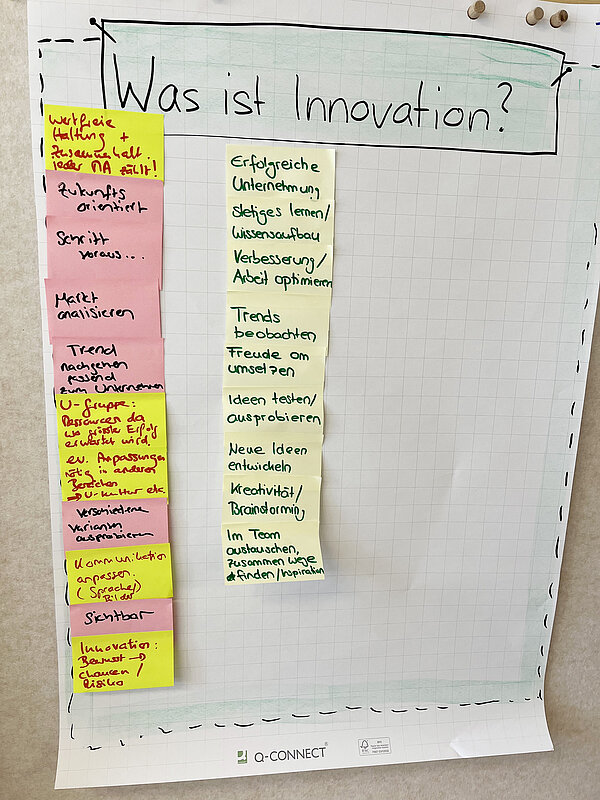 Was ist Innovation?
Wertfreie
Haltung +
Zusammenhalt.
jeder MA zählt!
Zukunfts
orientiert
Schritt
voraus...
Markt
analisieren
Trend
nachgehen
passend
zum Unternehmen
U-Gruppe:
Ressourcen da
wo grösste Erfolg
erwartet wird.
ev. Anpassungen
nötig in anderen
Bereichen
→ U-Kultur etc.
Verschiedene
Varianten
ausprobieren
Kommunikation
anpassen.
(Sprache/
Bilder
Sichtbar
Innovation:
Bewusst →
chancen /
Risiko
Erfolgreiche
Unternehmung
stetiges lernen/
Wissensaufbau
Verbesserung/
Arbeit optimieren
Trends
beobachten
Freude am
umsetzen
Ideen testen/
ausprobieren
Neue Ideen
entwickeln
Kreativität/
Brainstorming
Im Team
austauschen,
zusammen wege
finden/Inspiration
Q-CONNECT
FSC